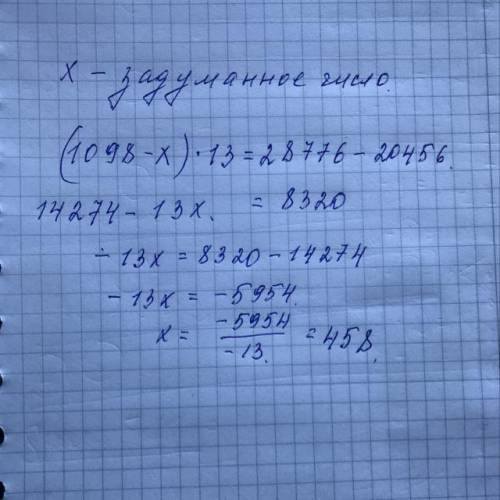 x – задуманное число.
(1098-x)·13=28776-20456.
14274-13x. = 8320
-13x = 8320-14274
-13x = -5954.
x = -5954/-13. =458.